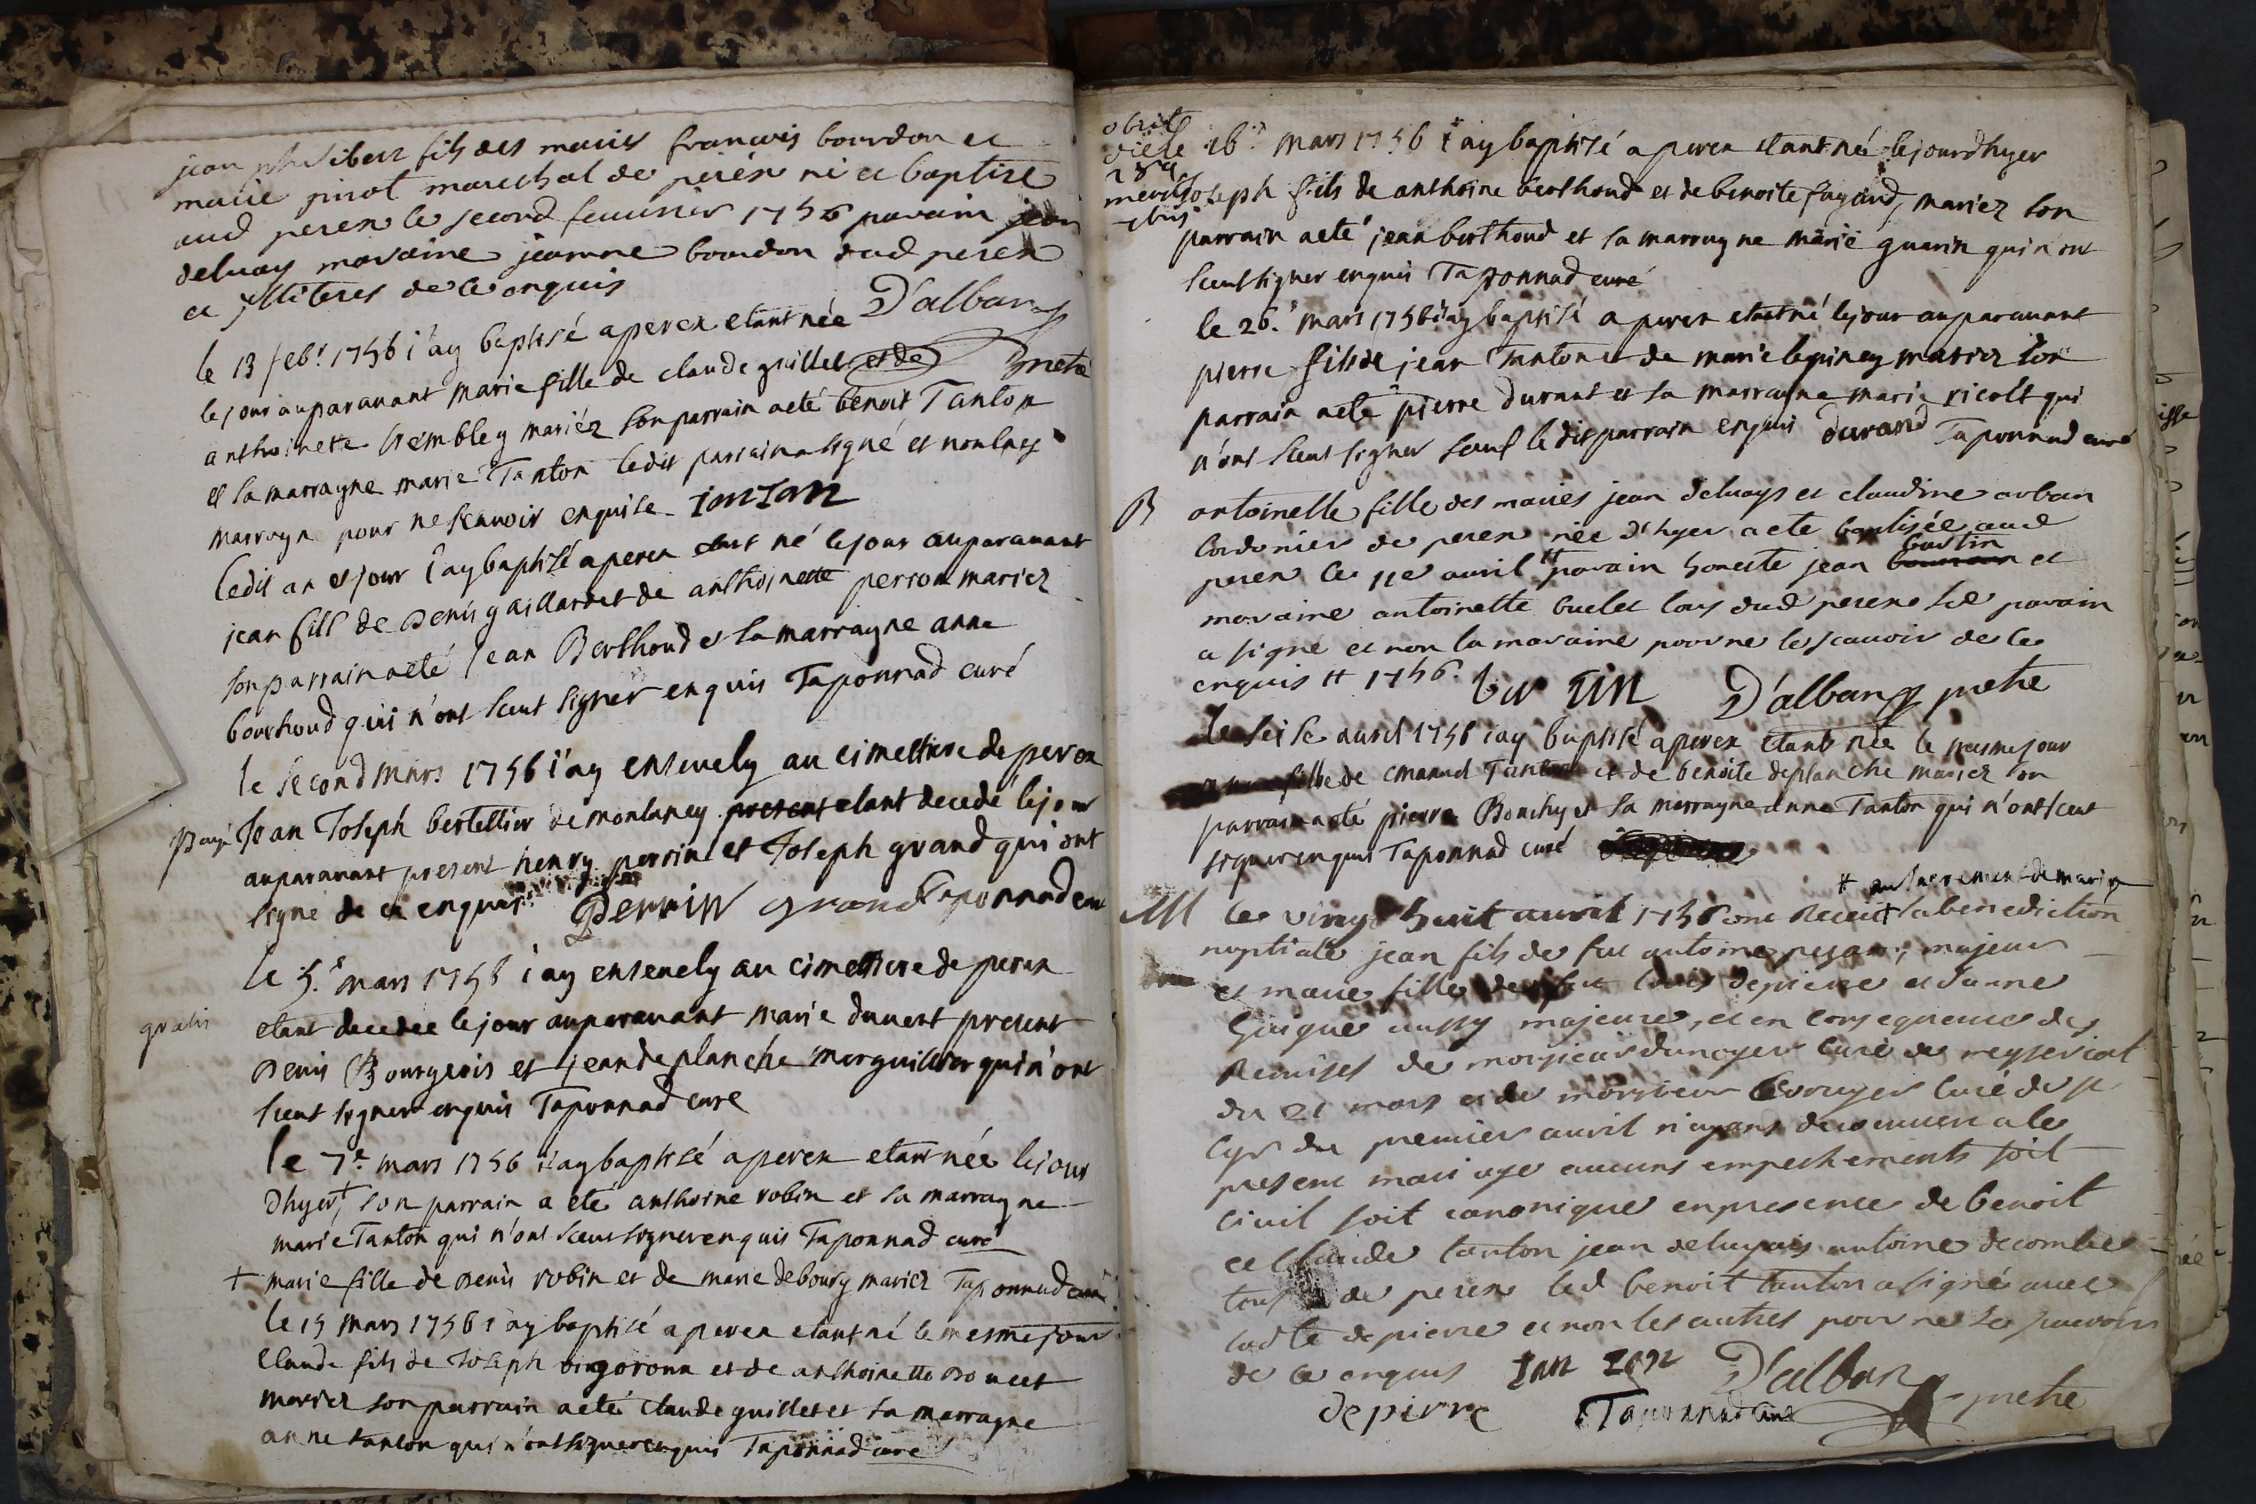 jean philibert fils des maries francois bourdon et
marie pirot marechal de perex né et baptisé
aud perex le second feuurier 1756 parain jean
deluays maraine jeanne bourdon dud perex
et illiteres de ce enquis D'alban
pretre
le 13 febr. 1756 i'ay baptisé a perex etant née
le jour auparauant marie fille de claude guillet et de
anthoinette trembley mariéz son parrain a eté benoit Tanton
et la marrayne marie Tanton ledit parrain a signé et non lad
marrayne pour ne scauoir enquise Tanton
ledit an et jour i'ay baptisé a perex etant né le jour auparauant
jean fils de denis gaillard et de anthoinette perron mariez
son parrain a eté jean Berthoud et la marrayne anne
bourhoud qui n'ont sceut signer enquis Taponnad curé
le second mars 1756 i'ay enseuely au cimettiere de perex
payé Jean Joseph bertettier de monlaney present etant decedé le jour
auparauant present henry perrin et Joseph grand qui ont
signé de ce enquis Perrin Grand Taponnad curé
le 5.e mars 1756 i'ay enseuely au cimettiere de perex
gratis etant decedée le jour auparauant marie duuert present
denis Bourgeois et jean deplanche marguillier qui n'ont
sceut signer enquis Taponnad curé
le 7.e mars 1756 i'ay baptisé a perex etant née le jour
d'hyer + son parrain a eté anthoine robin et la marrayne
marie Tanton qui n'ont sceut signer enquis Taponnad curé
+ marie fille de denis robin et de marie debourg mariez Taponnad curé
le 15 mars 1756 i'ay baptisé a perex etant né le mesme jour
Claude fils de Joseph et de anthoinette
mariez son parrain a eté Claude guillet et la marrayne
anne tanton qui n'ont signer enquis Taponnad curé
obiit
die
le 16.e mars 1756 i'ay baptisé a perex etant né le jour d'hyer
joseph fils de anthoine berthoud et de benoite fayard, mariez son
parrain a eté jean berthoud et la marrayne marie guerin qui n'ont
sceut signer enquis Taponnad curé
le 26.e mars 1756 i'ay baptisé a perex etant né le jour auparauant
pierre fils de jean Tanton et de marie lepiney mariez son
parrain a eté pierre durant et la marrayne marie ricolt qui
n'ont sceut signer sauf le dit parrain enquis durand Taponnad curé
B antoinette fille des maries jean deluays et claudine arban
cordonier de perex née d'hyer a eté baptisée aud
perex le 11e auril # parain honeste jean bustin et
maraine antoinette buelet tous dud perex led parain
a signé et non la maraine pour ne le scauoir de ce
enquis # 1756. bustin D'alban pretre
le seise auril 1756 i'ay baptisé a perex etant née le mesme jour
fille de emanuel Tanton et de benoite deplanche mariez son
parrain a eté pierre Bouchy et la marrayne anne Tanton qui n'ont sceut
signer enquis Taponnad curé
+ au sacrement de mariage
M le vingt huit auril 1756 ont receu + la benediction
nuptiale jean fils de feu antoine majeur
et marie fille de feu louis depierre et d'anne
aussy majeure, et en consequence des
remises de monsieur dunoyer curé de reyssiat
du 21 mars et de monsieur curé de st
cyr du premier auril n'ayant decouuert a le
present mariage aucuns empechements soit
ciuil soit canonique en presence de benoit
et Claude tanton jean deluays antoine decombe
tous de perex led benoit tanton a signé auec
depierre et non les autres pour ne le scauoir
de ce enquis Tanton D'alban pretre
depierre Taponnad curé